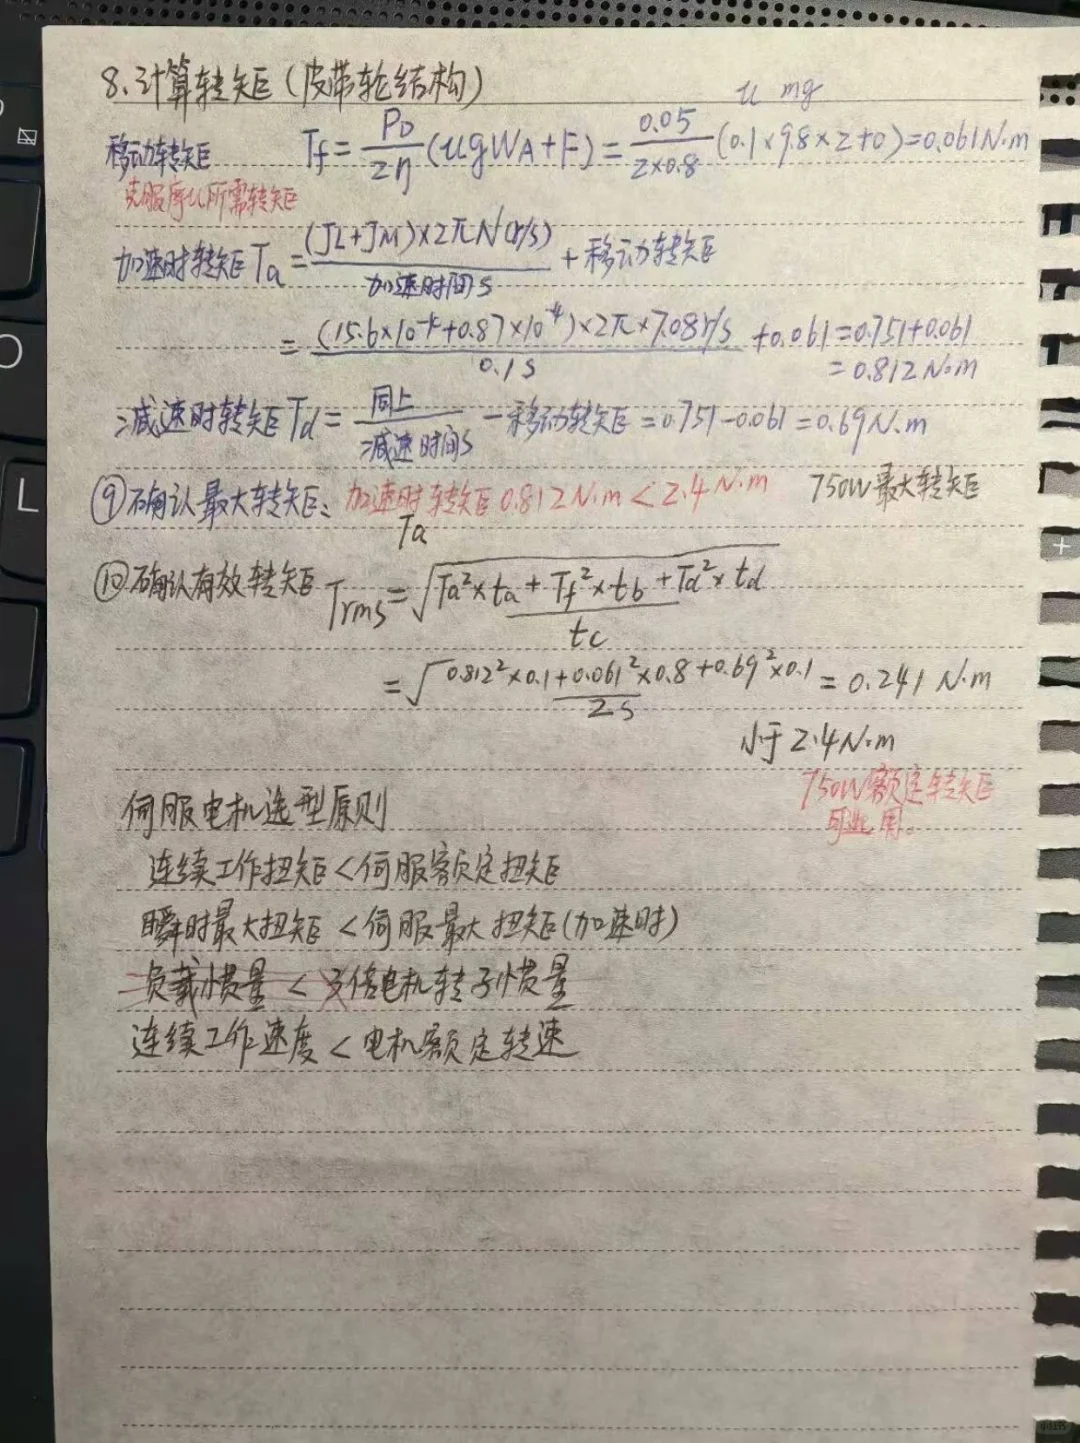 8、计算转矩(皮带轮结构)
u mg
移动转矩 Tf = PD/2η (ugWA+F) = 0.05/2×0.8 (0.1×9.8×2+0)=0.061N·m
克服摩擦所需转矩
加速时转矩Ta = (JL+JM)×2πN(r/s)/加速时间s + 移动转矩
= (15.6×10⁻⁴+0.87×10⁻⁴)×2π×7.08r/s/0.1s +0.061=0.751+0.061
=0.812N·m
减速时转矩Td = 同上/减速时间s - 移动转矩=0.751-0.061=0.69N.m
⑨确认最大转矩: 加速时转矩0.812N·m<2.4N·m 750W最大转矩
Ta
⑩确认有效转矩 Trms=√Ta²×ta+Tf²×tb+Td²×td/tc
=√0.812²×0.1+0.061²×0.8+0.69²×0.1/2s = 0.241 N·m
小于2.4N·m
750W额定转矩
可选用。
伺服电机选型原则
连续工作扭矩<伺服额定扭矩
瞬时最大扭矩<伺服最大扭矩(加速时)
负载惯量<3倍电机转子惯量
连续工作速度<电机额定转速
L
+